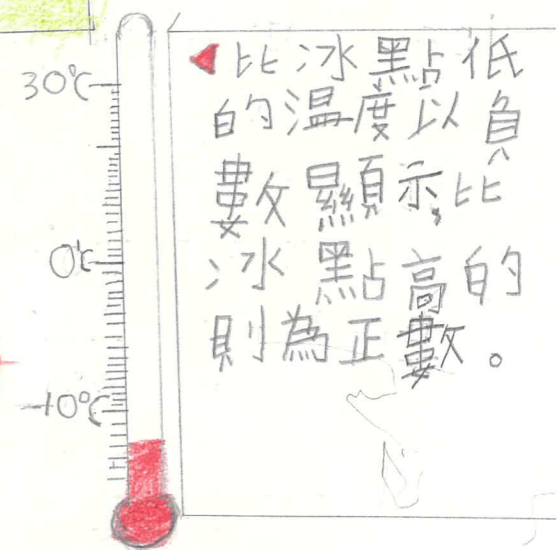 30℃
0℃
-10℃
比冰點低
的温度以負
數顯示,比
冰點高的
則為正數。